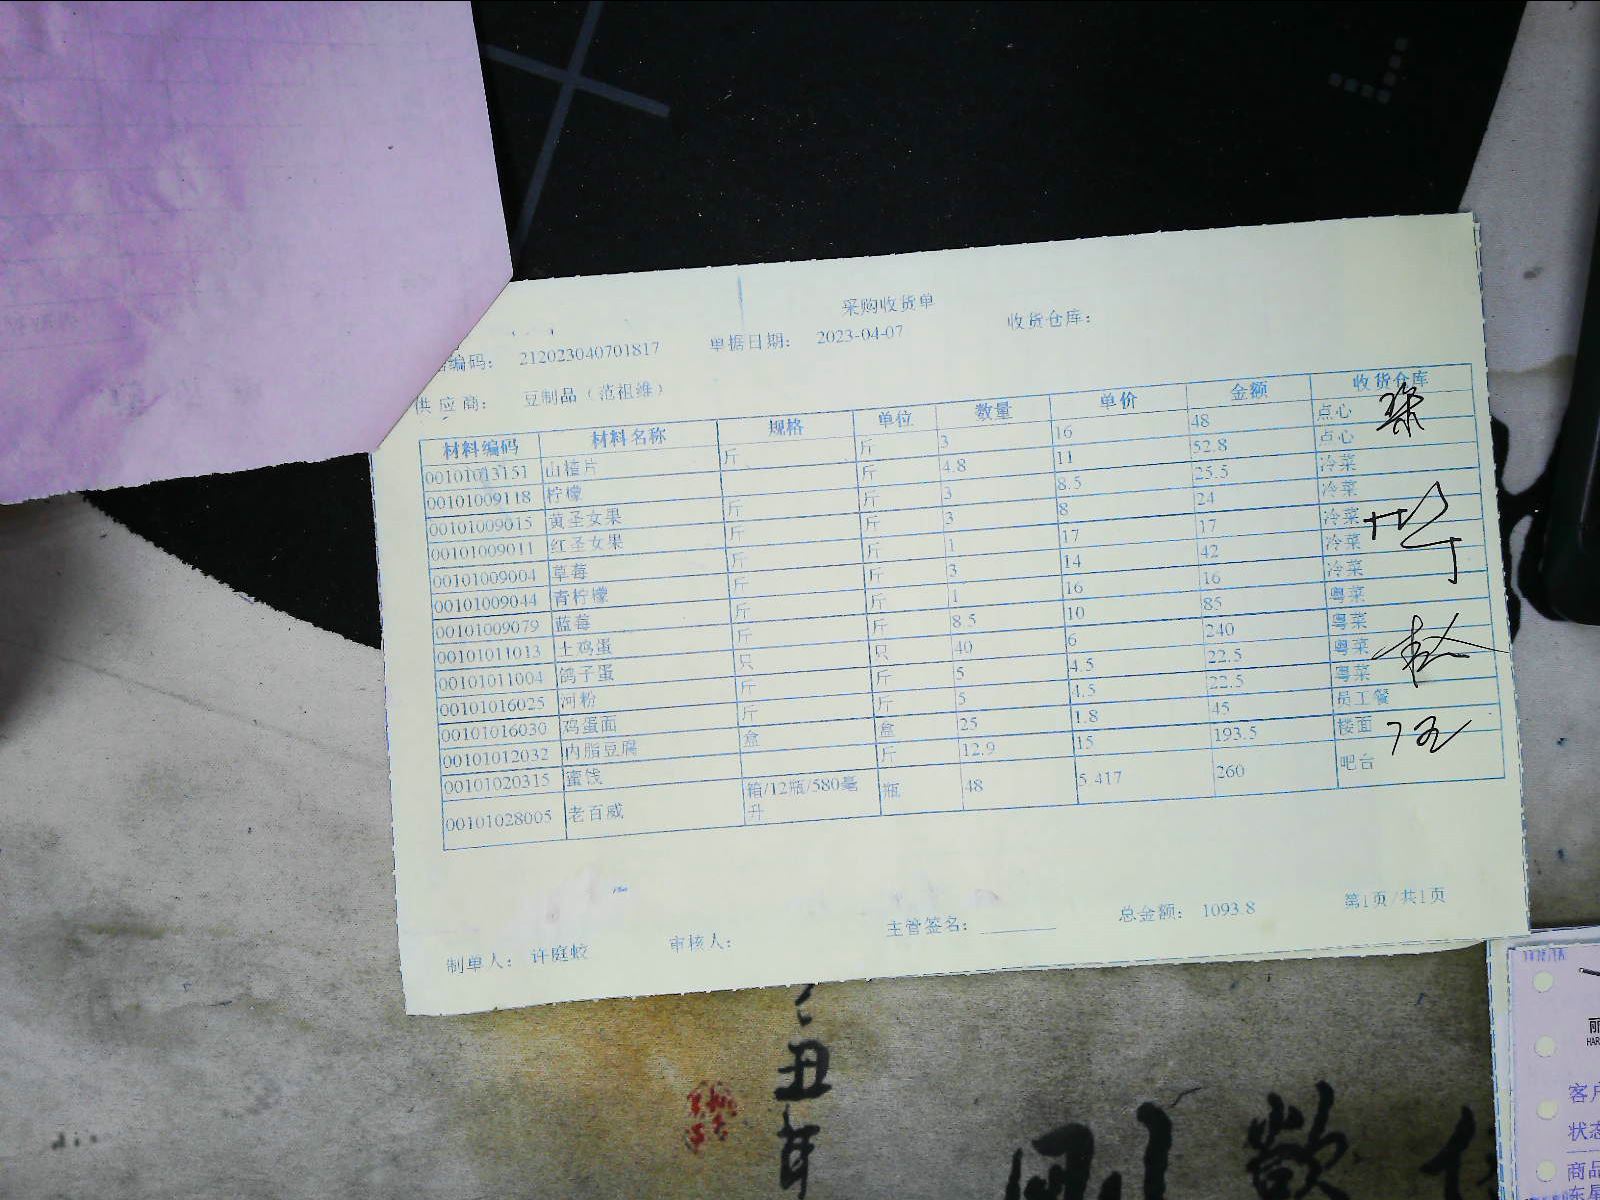 采购收货单
编码： 212023040701817 单据日期： 2023-04-07 收货仓库：
供应商： 豆制品（范祖维）
材料编码 材料名称 规格 单位 数量 单价 金额 收货仓库
00101013151 山楂片 斤 斤 3 16 48 点心
00101009118 柠檬 斤 4.8 11 52.8 点心
00101009015 黄圣女果 斤 斤 3 8.5 25.5 冷菜
00101009011 红圣女果 斤 斤 3 8 24 冷菜
00101009004 草莓 斤 斤 1 17 17 冷菜
00101009044 青柠檬 斤 斤 3 14 42 冷菜
00101009079 蓝莓 斤 斤 1 16 16 冷菜
00101011013 土鸡蛋 斤 斤 8.5 10 85 粤菜
00101011004 鸽子蛋 只 只 40 6 240 粤菜
00101016025 河粉 斤 斤 5 4.5 22.5 粤菜
00101016030 鸡蛋面 斤 斤 5 4.5 22.5 粤菜
00101012032 内脂豆腐 盒 盒 25 1.8 45 员工餐
00101020315 蜜饯 斤 12.9 15 193.5 楼面
00101028005 老百威 箱/12瓶/580毫升 瓶 48 5.417 260 吧台
制单人： 许庭蛟 审核人： 主管签名： 总金额： 1093.8 第1页/共1页
丑年
客户
状态
商品